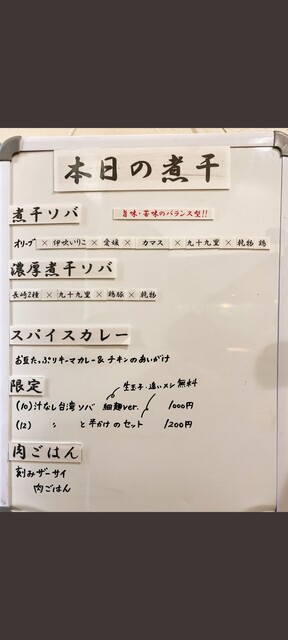 本日の煮干
煮干ソバ
旨味・苦味のバランス型!!
オリーブ × 伊吹いりこ × 愛媛 × カマス × 九十九里 × 乾物 鶏
濃厚煮干ソバ
長崎2種 × 九十九里 × 鶏豚 × 乾物
スパイスカレー
お豆たっぷりキーマカレー & チキンのあいがけ
限定
生玉子・追いメシ 無料
(10) 汁なし台湾ソバ 細麺ver. 1000円
(12) 〃 と半かけのセット 1200円
肉ごはん
刻みザーサイ
肉ごはん